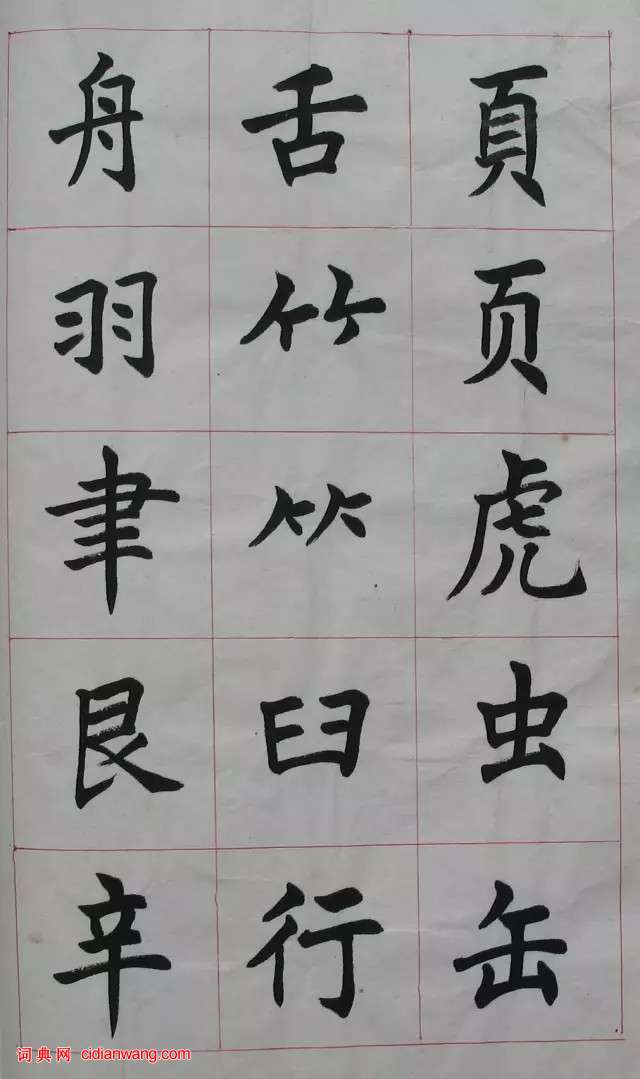 頁页虎虫缶
舌竹⺮臼行
舟羽聿艮辛
词典网 cidianwang.com